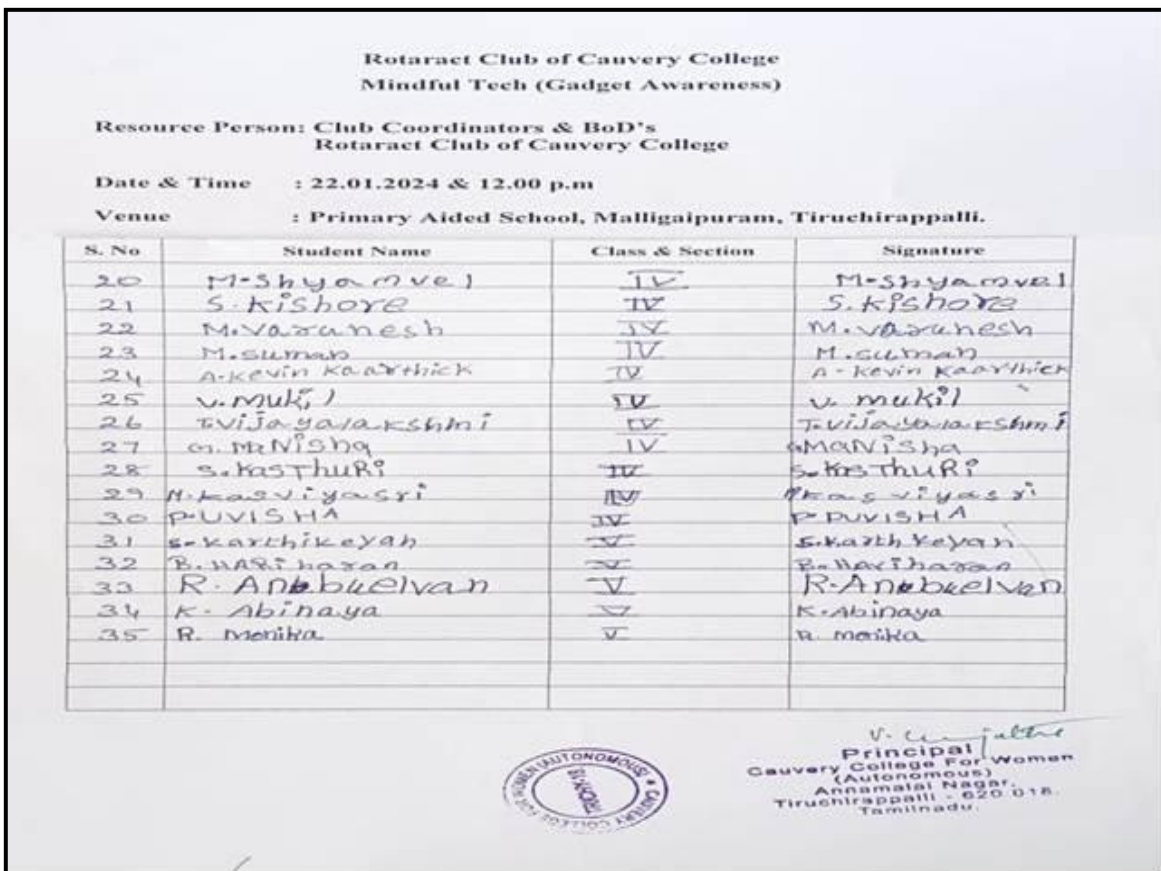 Rotaract Club of Cauvery College
Mindful Tech (Gadget Awareness)
Resource Person: Club Coordinators & BoD's
Rotaract Club of Cauvery College
Date & Time : 22.01.2024 & 12.00 p.m
Venue : Primary Aided School, Malligaipuram, Tiruchirappalli.
S. No Student Name Class & Section Signature
20 M-Shyamvel IV M-Shyamvel
21 S. Kishore IV S. Kishore
22 M. Varunesh IV M. Varunesh
23 M. suman IV M. suman
24 A-Kevin Kaarthick IV A-Kevin Kaarthick
25 V. mukil IV V. mukil
26 T. Vijayalakshmi IV T. Vijayalakshmi
27 G. MaNisha IV G MaNisha
28 S. KasThuRi IV S. KasThuRi
29 M. kasviyasri IV M kasviyasri
30 P-UVISHA IV P PUVISHA
31 S-Karthikeyan V S. Karthkeyan
32 B. HARiharan V B. Hariharan
33 R. Anbuelvan V R. Anbuelvan
34 K. Abinaya V K. Abinaya
35 R. Monika V R. monika
Principal
Cauvery College For Women
(Autonomous)
Annamalai Nagar,
Tiruchirappalli - 620 018.
Tamilnadu.
CAUVERY COLLEGE FOR WOMEN (AUTONOMOUS)
TRICHY-18